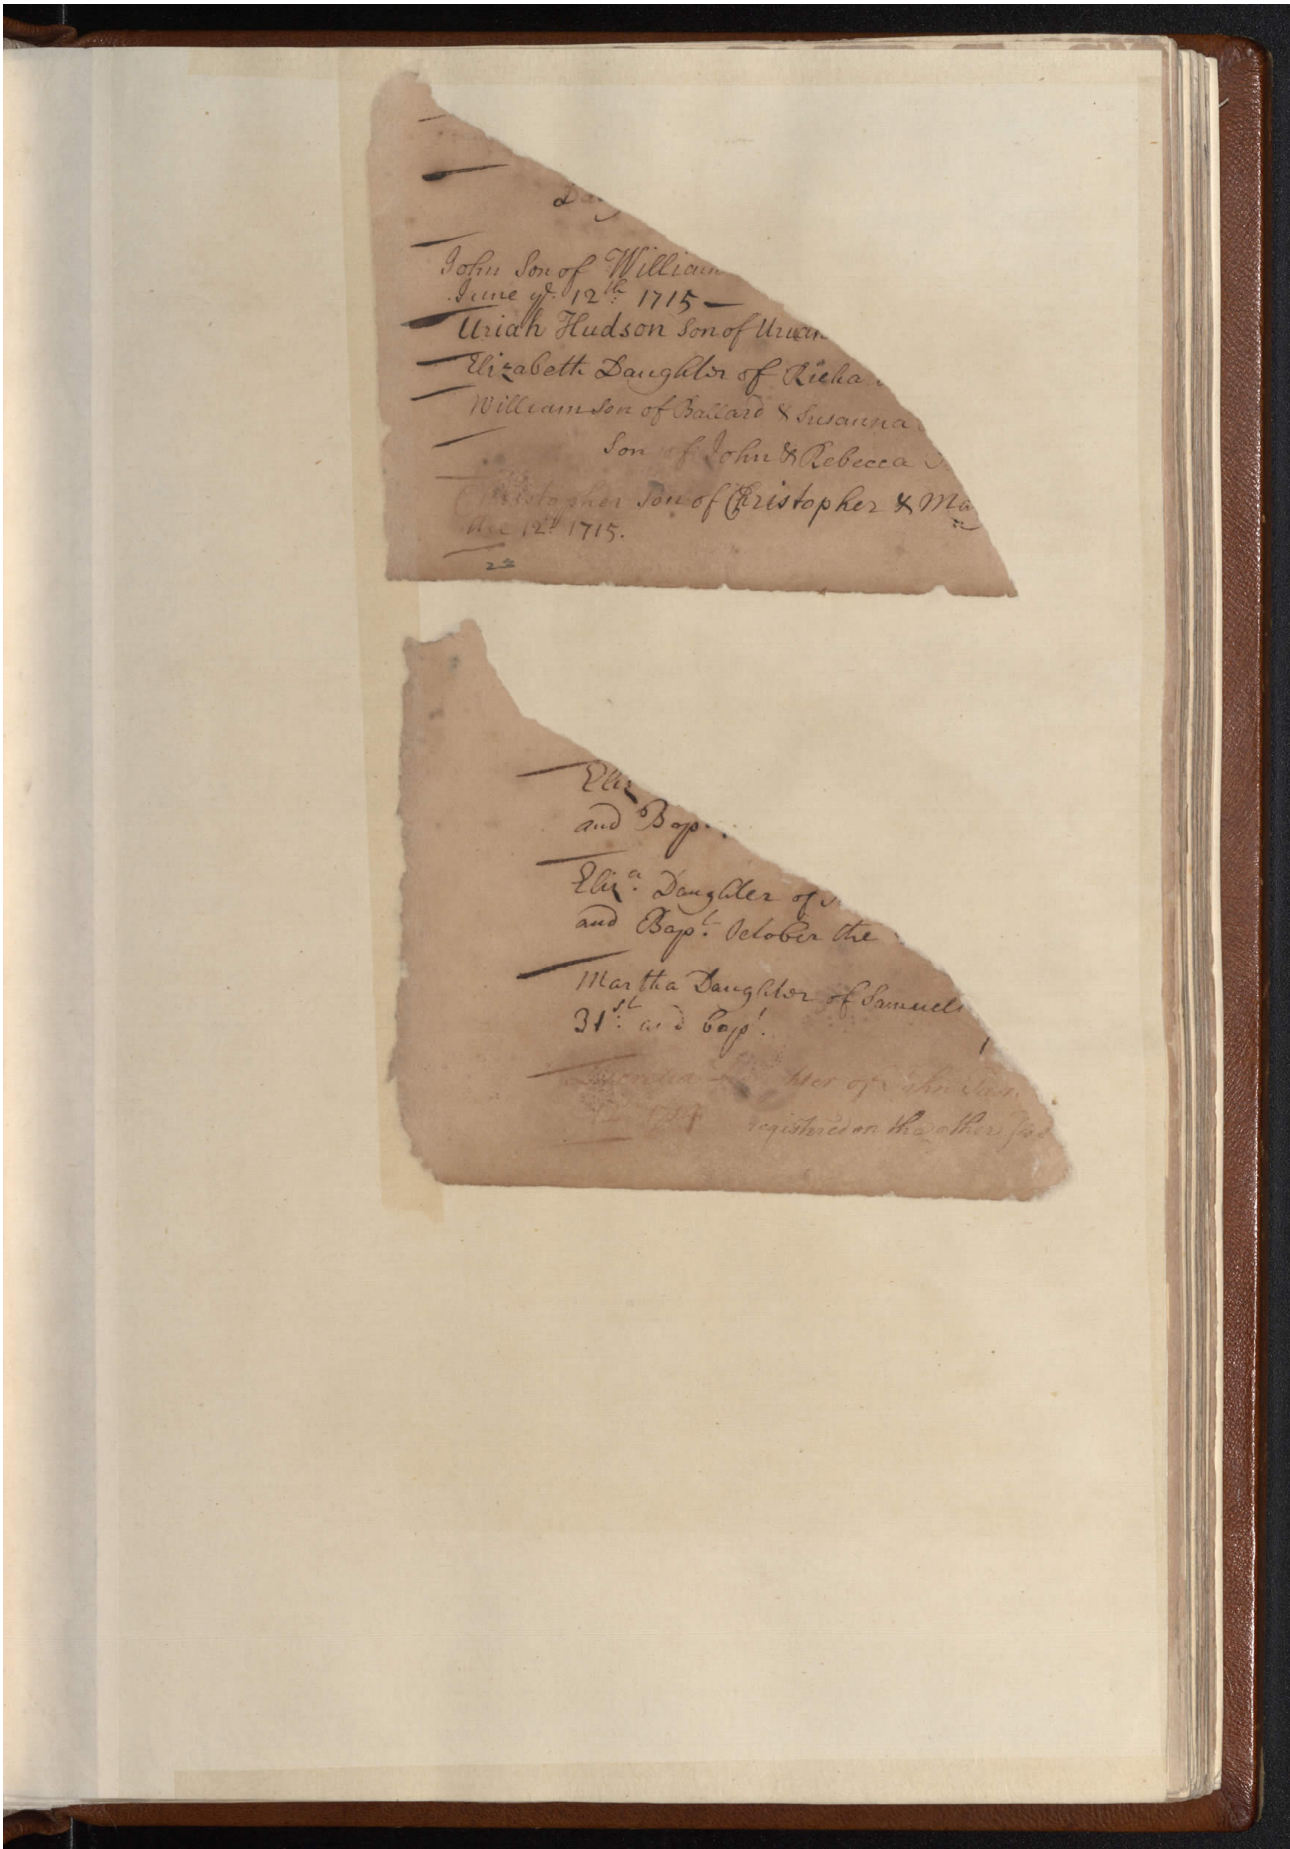 Dau
John Son of William
June ye. 12th 1715
Uriah Hudson Son of Uriah
Elizabeth Daughter of Richa
William Son of Ballard & Susanna
Son of John & Rebecca
Christopher Son of Christopher & Ma
12th 1715.
Eliz
and Bap.
Eliza. Daughter of
and Bapt. October the
Martha Daughter of Samuel
31st: and bapt.
hter of John
registered on the other